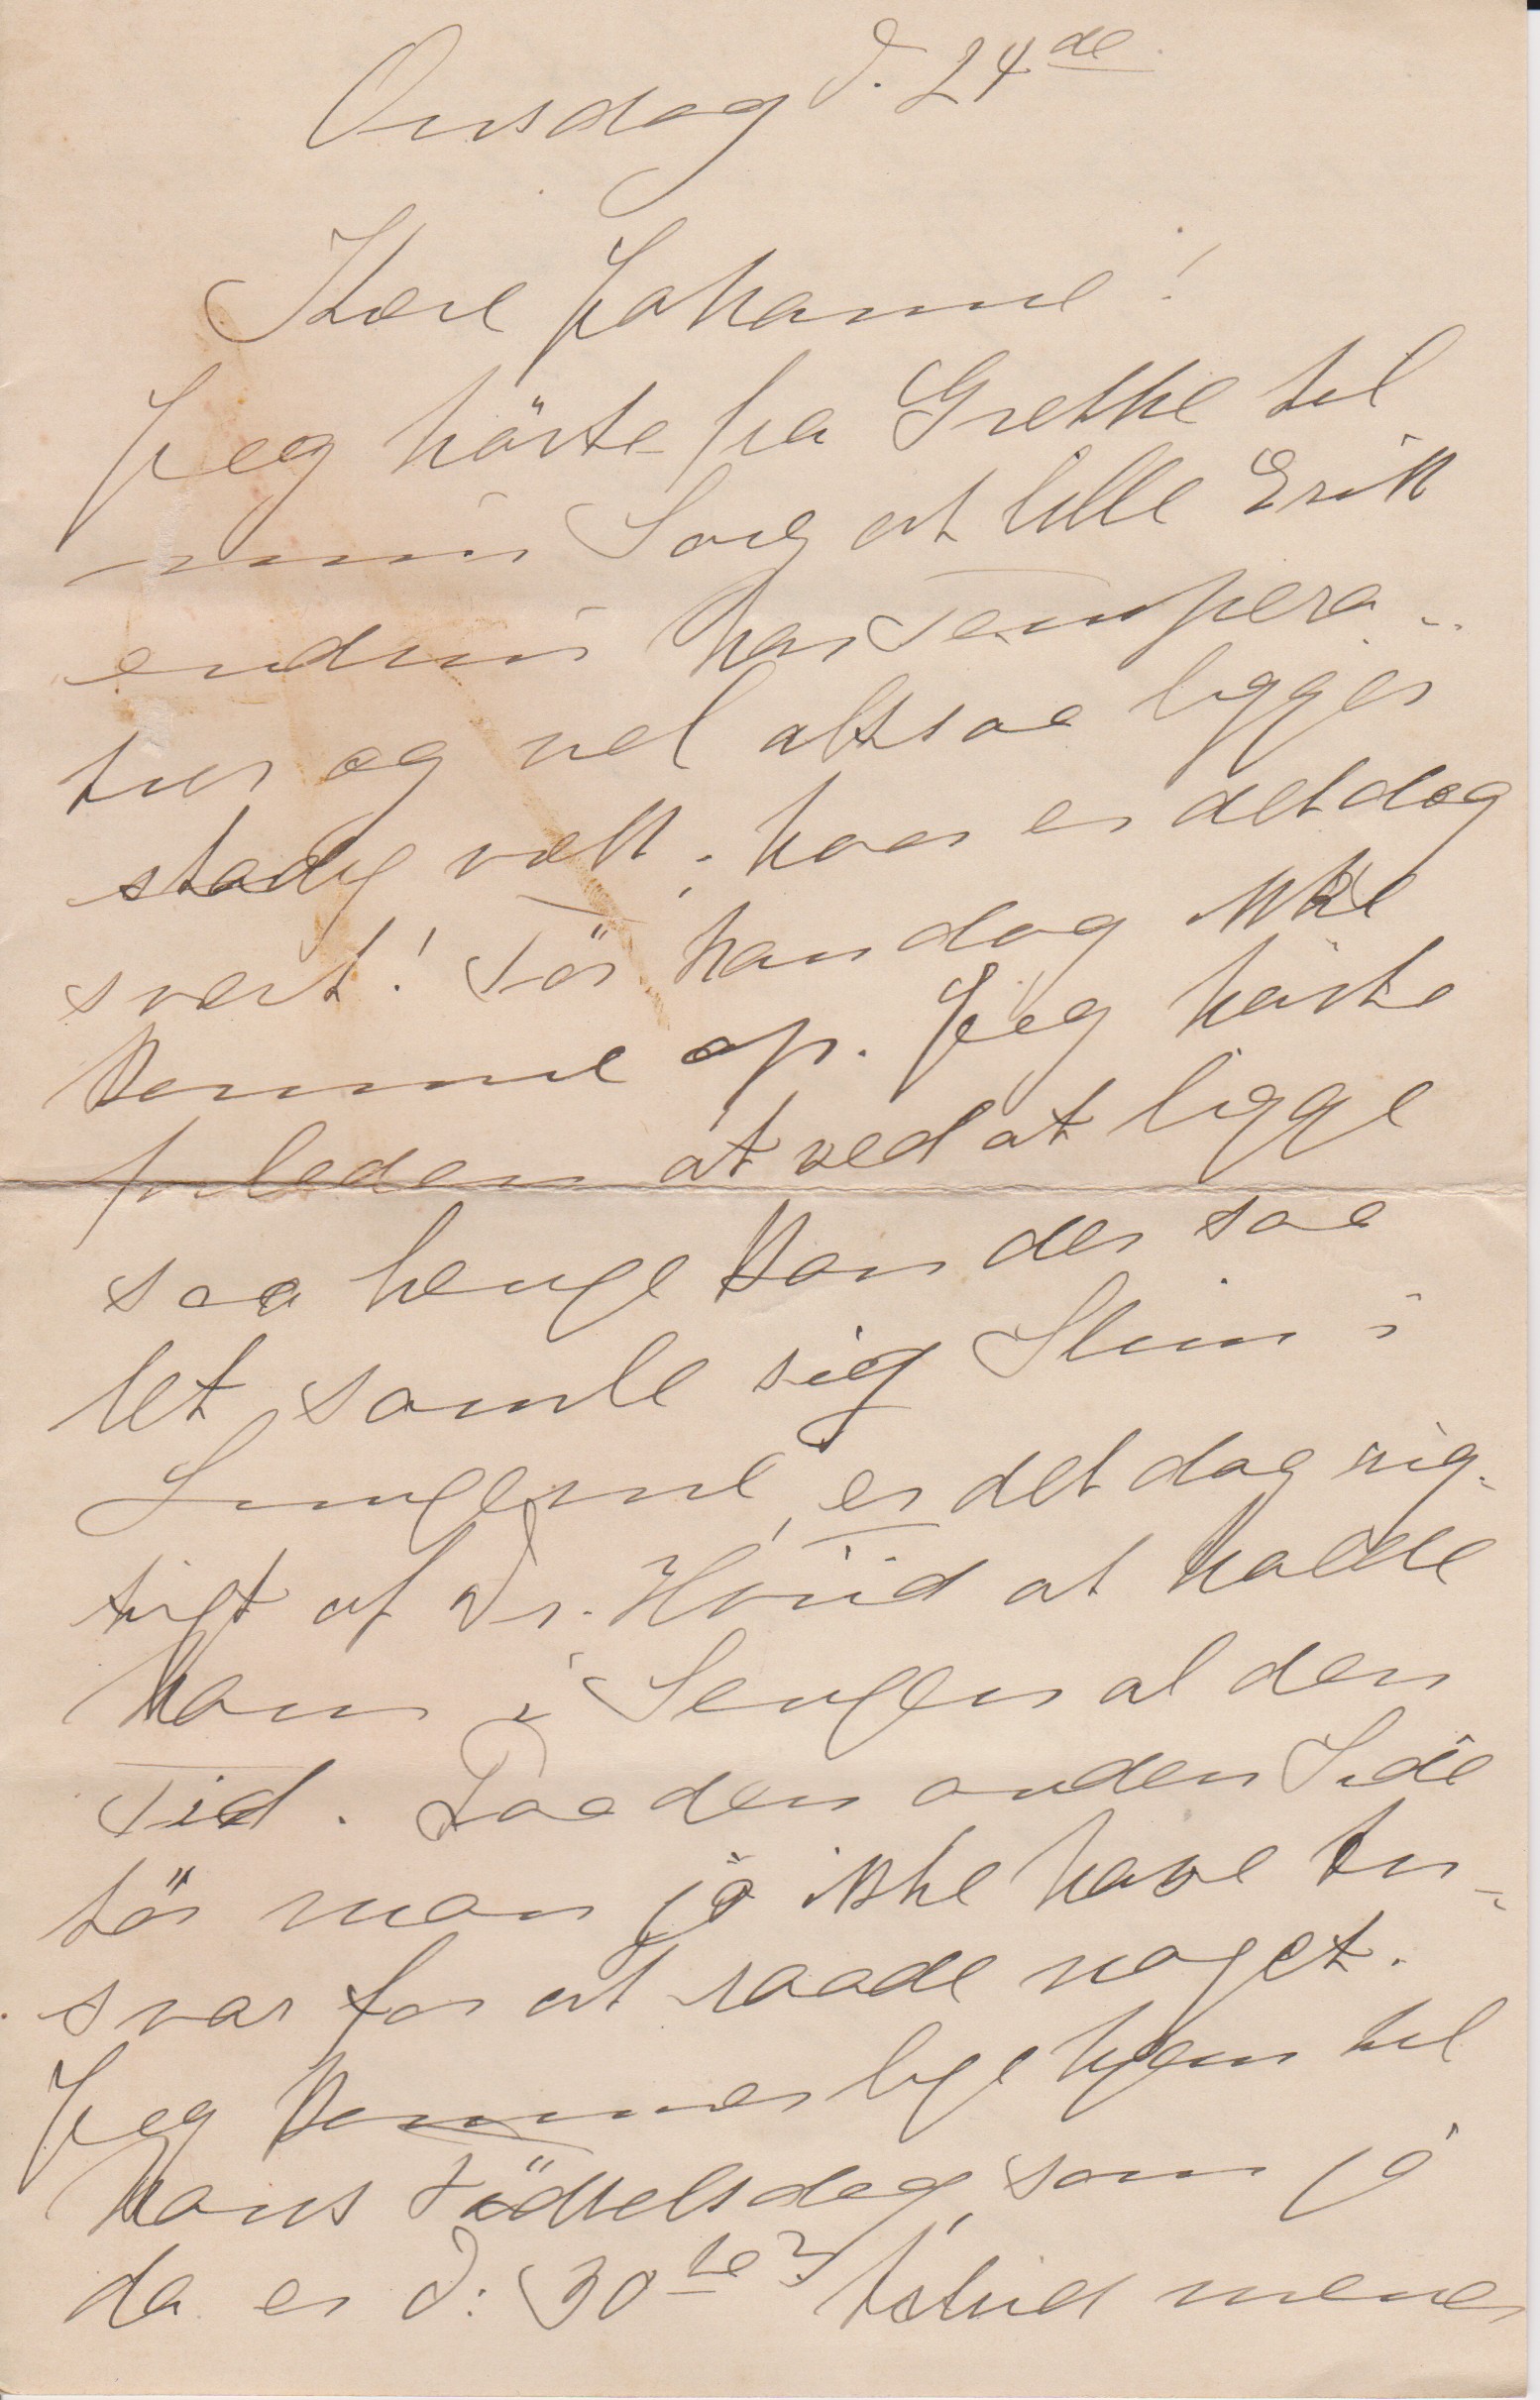 Onsdag d. 24de
Kære Johanne!
Jeg hörte fra Grethe til
min Sorg at lille Erik
endnu har Tempera-
tur og vel altsaa ligger
stadig væk, hvor er det dog
svært! Tör han dog ikke
komme op. Jeg hörte
forleden at ved at ligge
saa længe kan der saa
let samle sig Slim i
Lungerne, er det dog rig-
tigt af Dr. Hövid at holde
ham i Sengen al den
Tid. Paa den anden Side
tör man jo ikke have An-
svar for at raade noget.
Jeg kommer lige hjem til
hans Födselsdag, som jo
da er d: 30te? Astrid mener